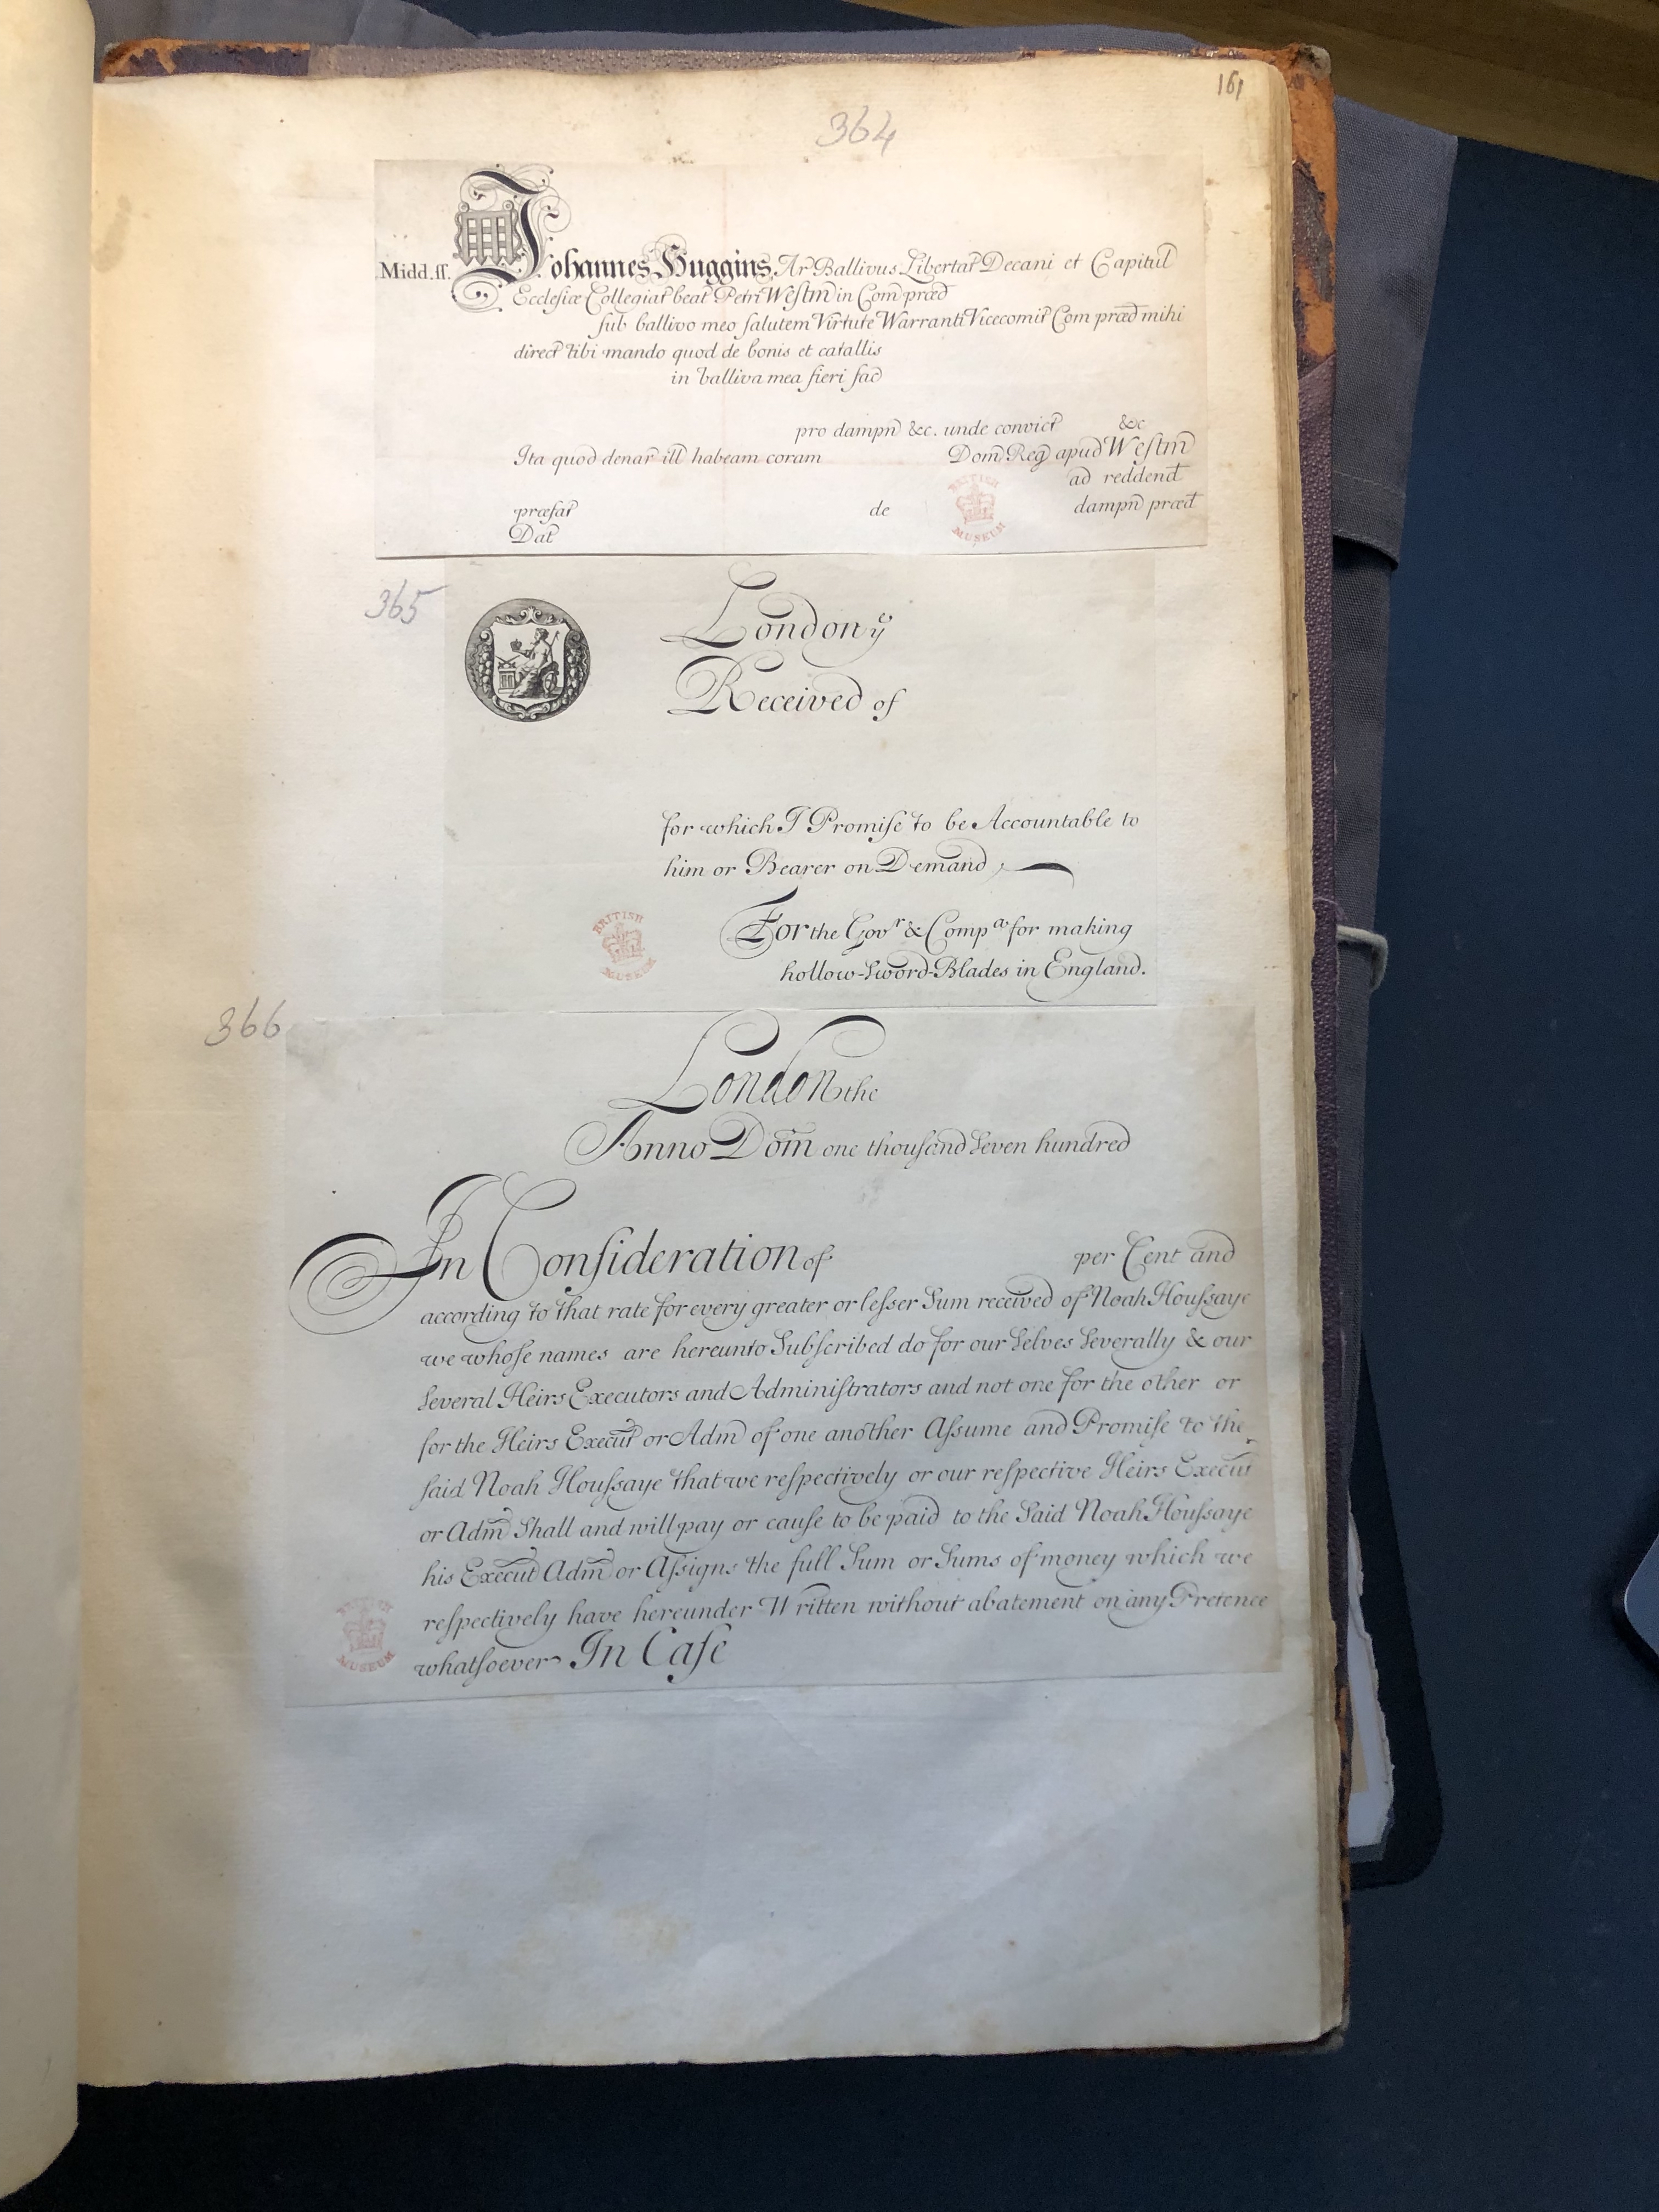 161
364
Midd. ſſ. Johannes Huggins, Ar Ballivus Libertat Decani et Capitul
Ecclesiæ Collegiat beat Petri Westm in Com præd
sub ballivo meo salutem Virtute Warranti Vicecomit Com præd mihi
direct tibi mando quod de bonis et catallis
in balliva mea fieri fac
pro dampn &c. unde convict &c
Ita quod denar ill habeam coram Dom Reg apud Westm
ad reddend
præfat de dampn præd
Dat
BRITISH MUSEUM
365
London yᵉ
Received of
for which I Promiſe to be Accountable to
him or Bearer on Demand,
For the Govʳ & Compᵃ for making
hollow-Sword-Blades in England.
BRITISH MUSEUM
366
London the
Anno Dom̄ one thouſand Seven hundred
In Conſideration of per Cent and
according to that rate for every greater or leſser Sum received of Noah Houſsaye
we whoſe names are hereunto Subſcribed do for our Selves Severally & our
Several Heirs Executors and Adminiſtrators and not one for the other or
for the Heirs Execut or Adm of one another Aſsume and Promiſe to the
ſaid Noah Houſsaye that we reſpectively or our reſpective Heirs Execut
or Adm Shall and will pay or cauſe to be paid to the Said Noah Houſsaye
his Execut Adm or Aſsigns the full Sum or Sums of money which we
reſpectively have hereunder Written without abatement on any Pretence
whatſoever In Caſe
BRITISH MUSEUM